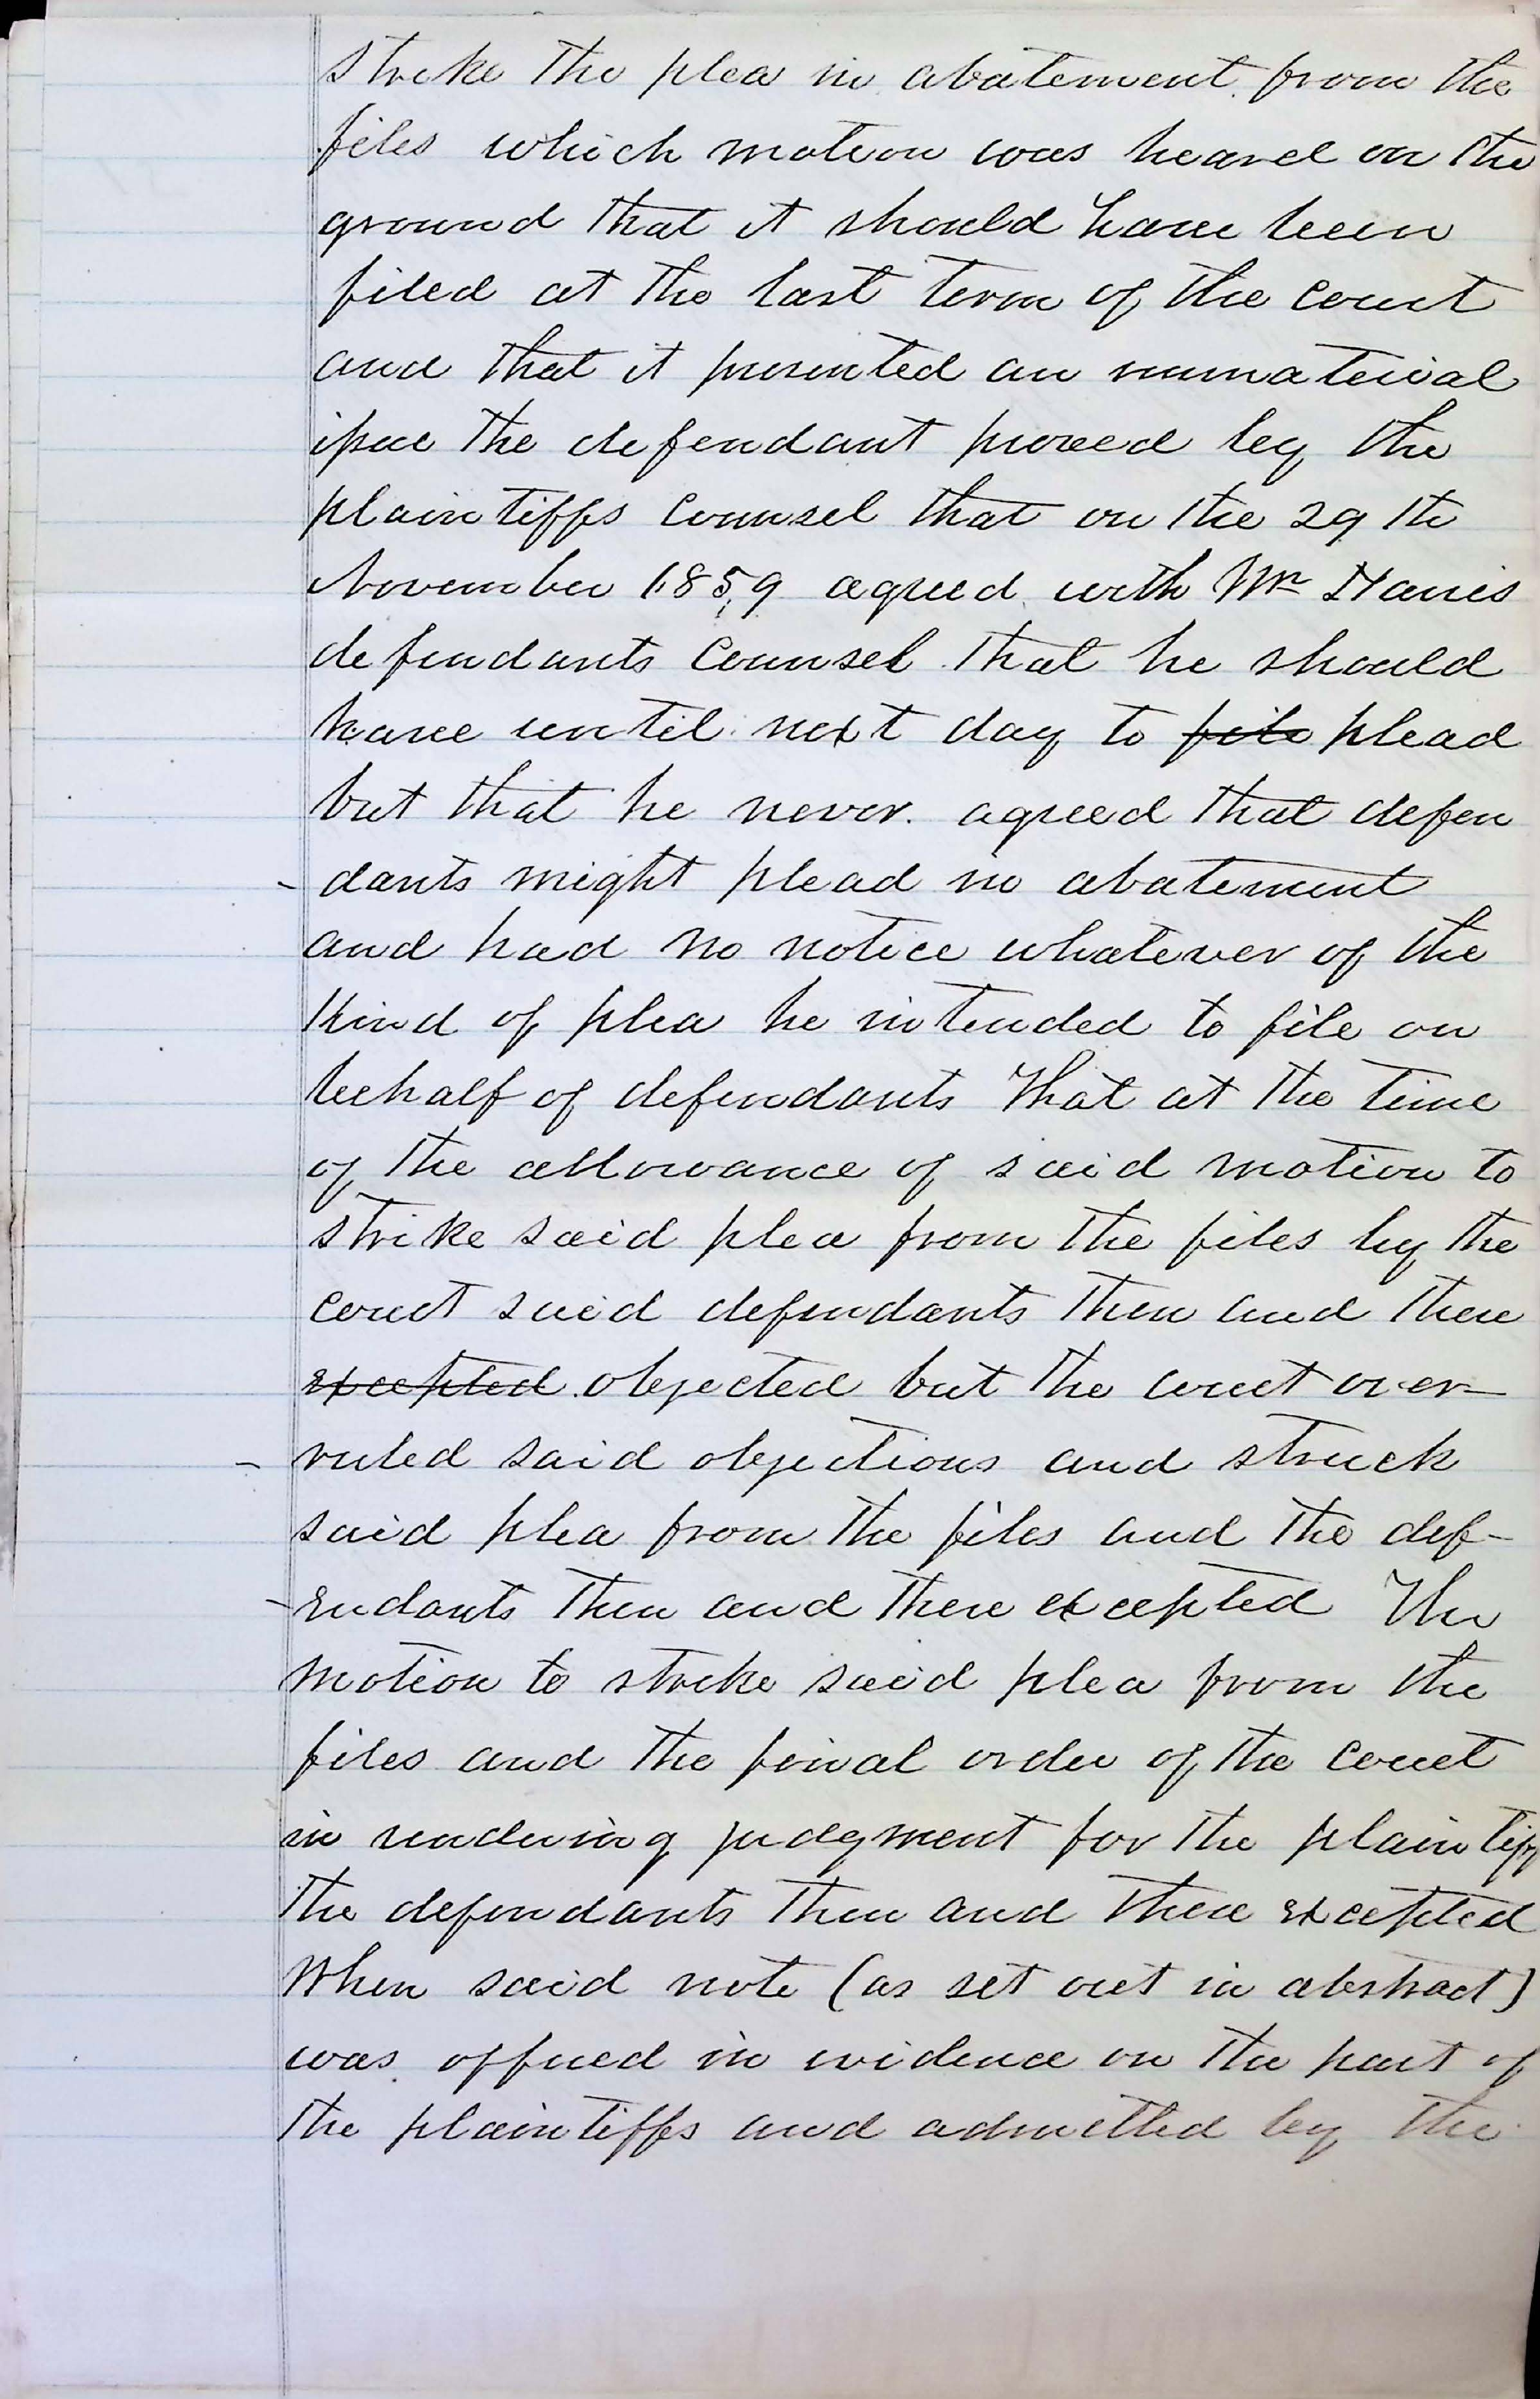 strike the plea in abatement from the
files which motion was heard on the
ground that it should have been
filed at the last term of the court
and that it presented an immaterial
issue the defendant proved by the
plaintiffs counsel that on the 29th
November 1859 agreed with Mr Harris
defendants counsel that he should
have until next day to file plead
but that he never agreed that defen
-dants might plead in abatement
and had no notice whatever of the
kind of plea he intended to file on
behalf of defendants That at the time
of the allowance of said motion to
strike said plea from the files by the
court said defendants then and there
excepted objected but the court over-
-ruled said objections and struck
said plea from the files and the def-
-endants then and there excepted The
motion to strike said plea from the
files and the final order of the court
in rendering judgment for the plaintiff
the defendants then and there excepted
When said note (as set out in abstract)
was offered in evidence on the part of
the plaintiffs and admitted by the